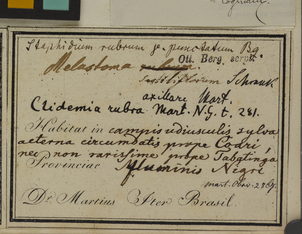 Stephidium rubrum γ. punctatum Bg
Ott. Berg. scrpt.
Melastoma rubrum
sessiliflorum Schrank
axillare Mart.
Clidemia rubra Mart. N.G. t. 281.
Habitat in campis udiusculis sylva
aeterna circumdatis prope Codri,
nec non rarissime prope Tabatinga
Provinciae fluminis Nigri
Mart. Obs. 2869.
Dr. Martius Iter Brasil.